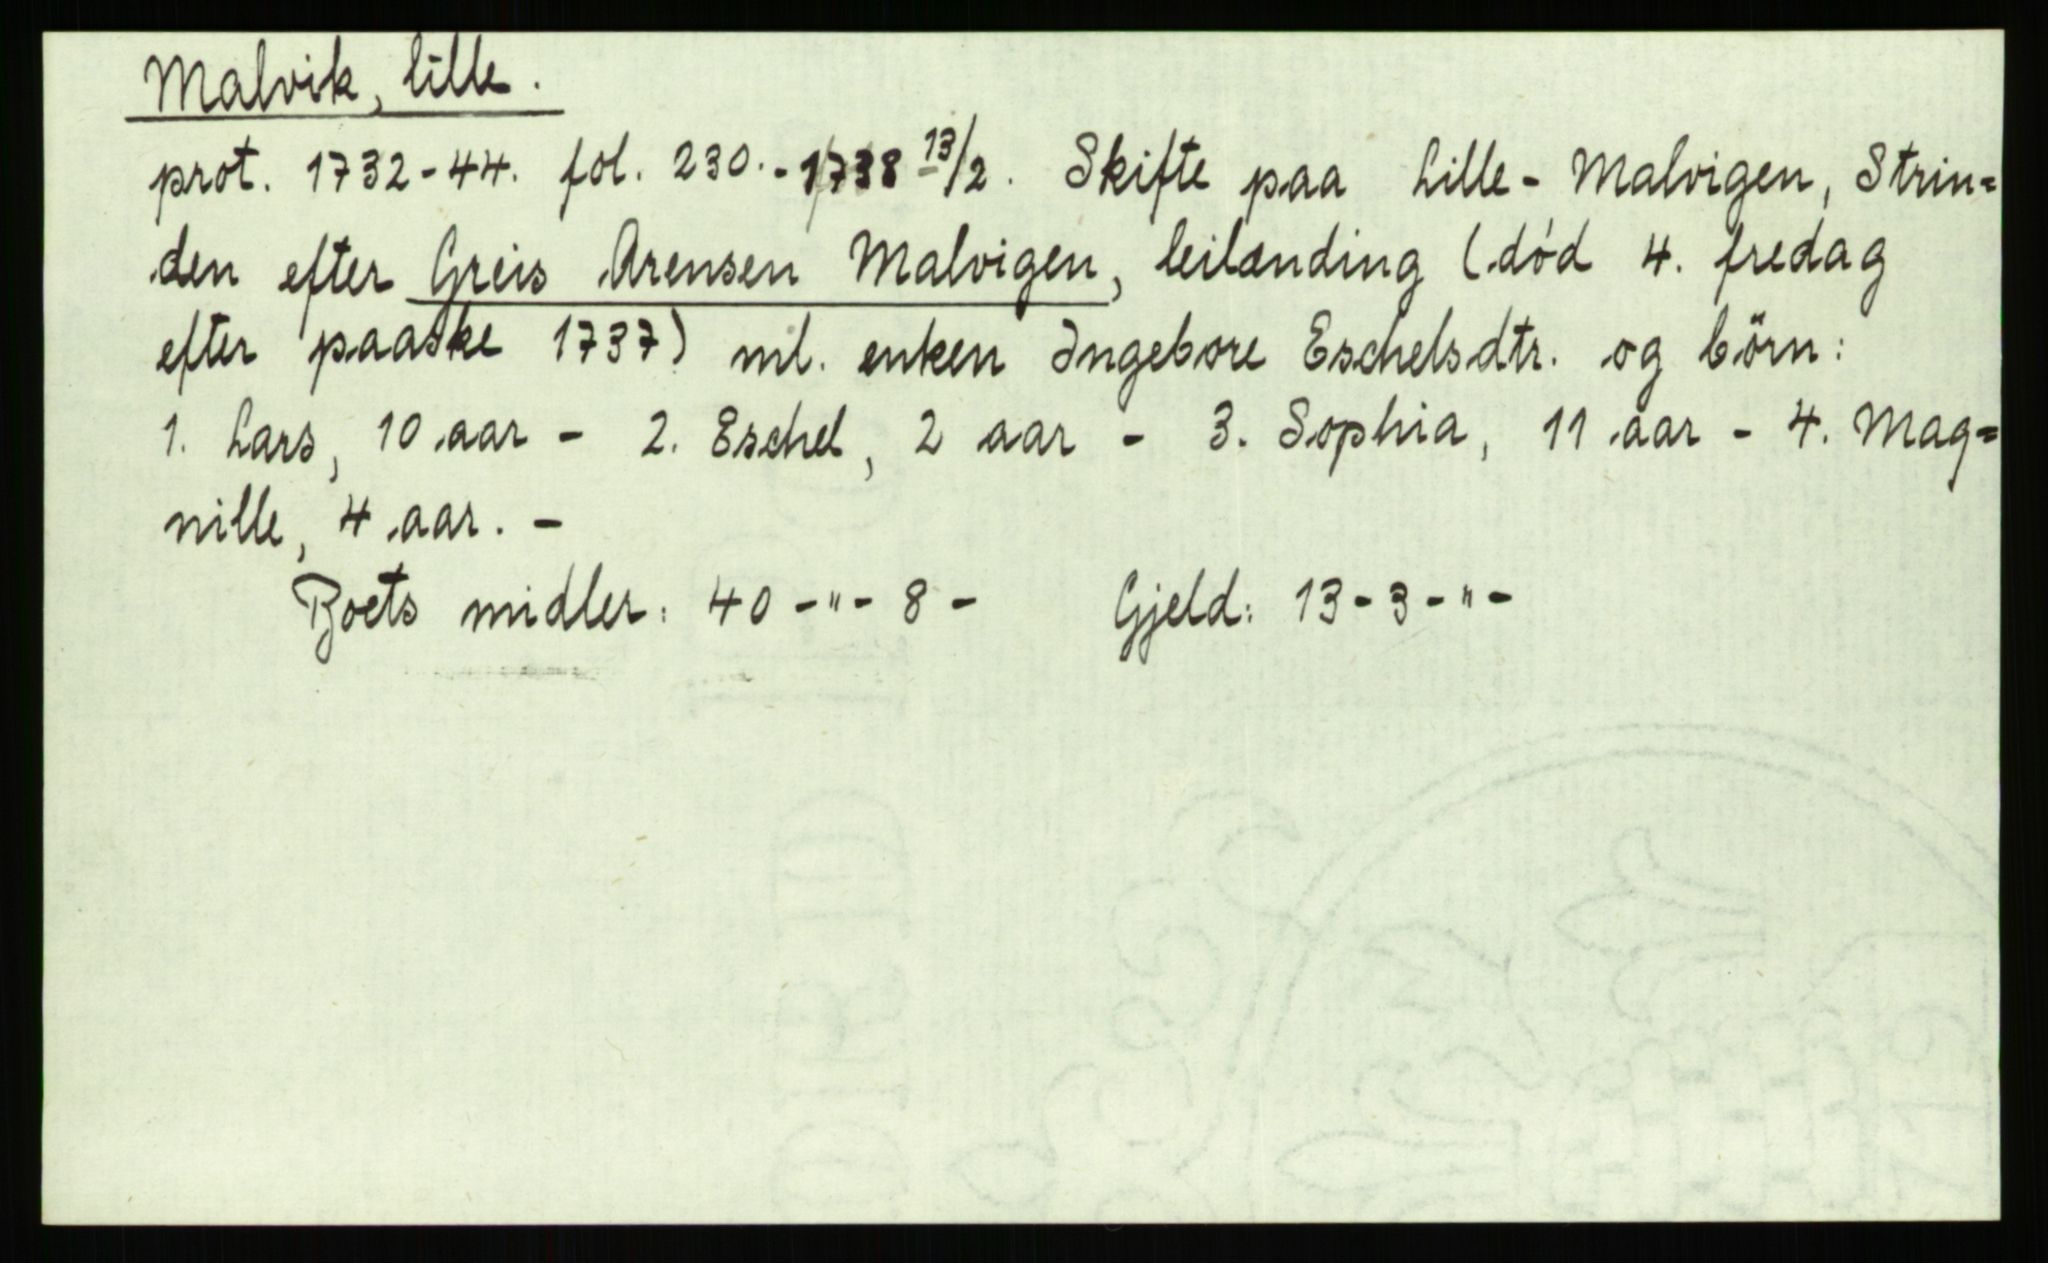 Malvik, lille.
prot. 1732-44. fol. 230. - 1738 13/2. Skifte paa Lille-Malvigen, Strin=
den efter Greis Arensen Malvigen, leilænding (död 4. fredag
efter paaske 1737) ml. enken Ingebore Eschelsdtr. og börn:
1. Lars, 10 aar - 2. Eschel, 2 aar - 3. Sophia, 11 aar - 4. Mag=
nille, 4 aar. -
Boets midler: 40 - " - 8 - Gjeld: 13 - 3 - " -